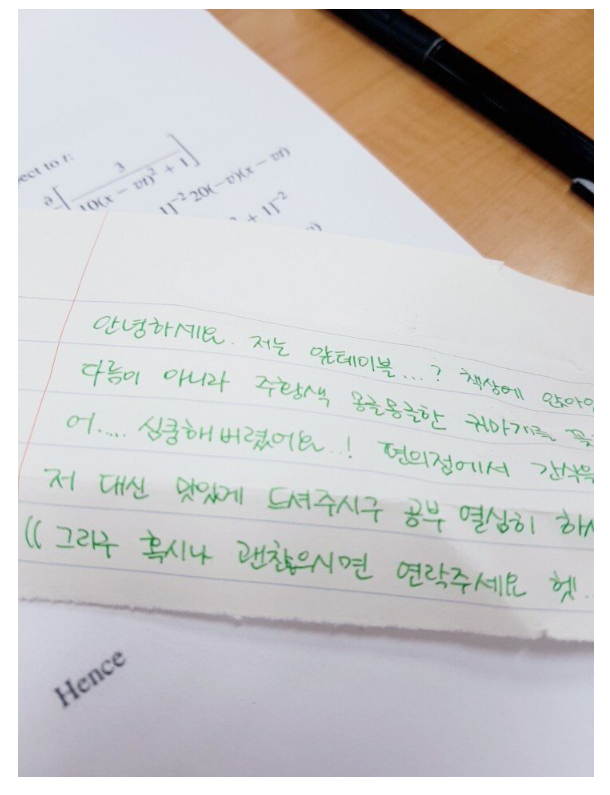 ect to t:
∂[ 3 / 10(x − vt)² + 1 ]
1]⁻² 20(−v)(x − vt)
² + 1]⁻²
안녕하세요. 저는 앞테이블...? 책상에 앉아있
다름이 아니라 주황색 몽글몽글한 귀마개를 꽂
어.... 심쿵해버렸어요..! 편의점에서 간식을
저 대신 맛있게 드셔주시구 공부 열심히 하시
(( 그리구 혹시나 괜찮으시면 연락주세요 헷..
Hence